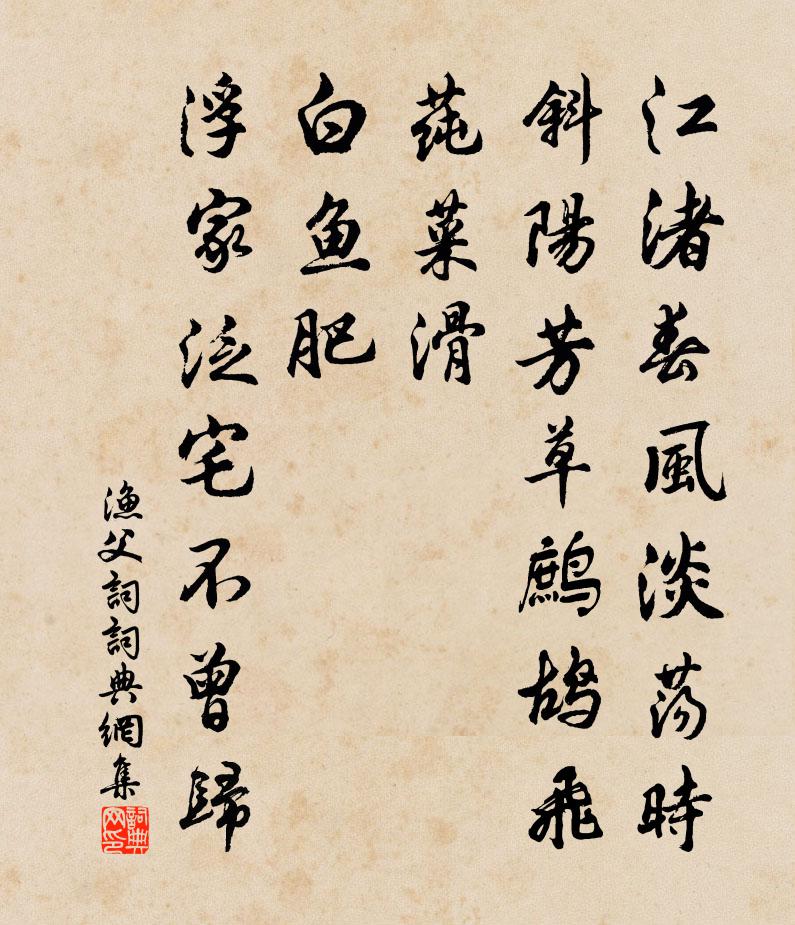 江渚春風淡蕩時
斜陽芳草鷓鴣飛
蒓菜滑
白鱼肥
浮家泛宅不曾歸
漁父詞詞典網集
詞典网印